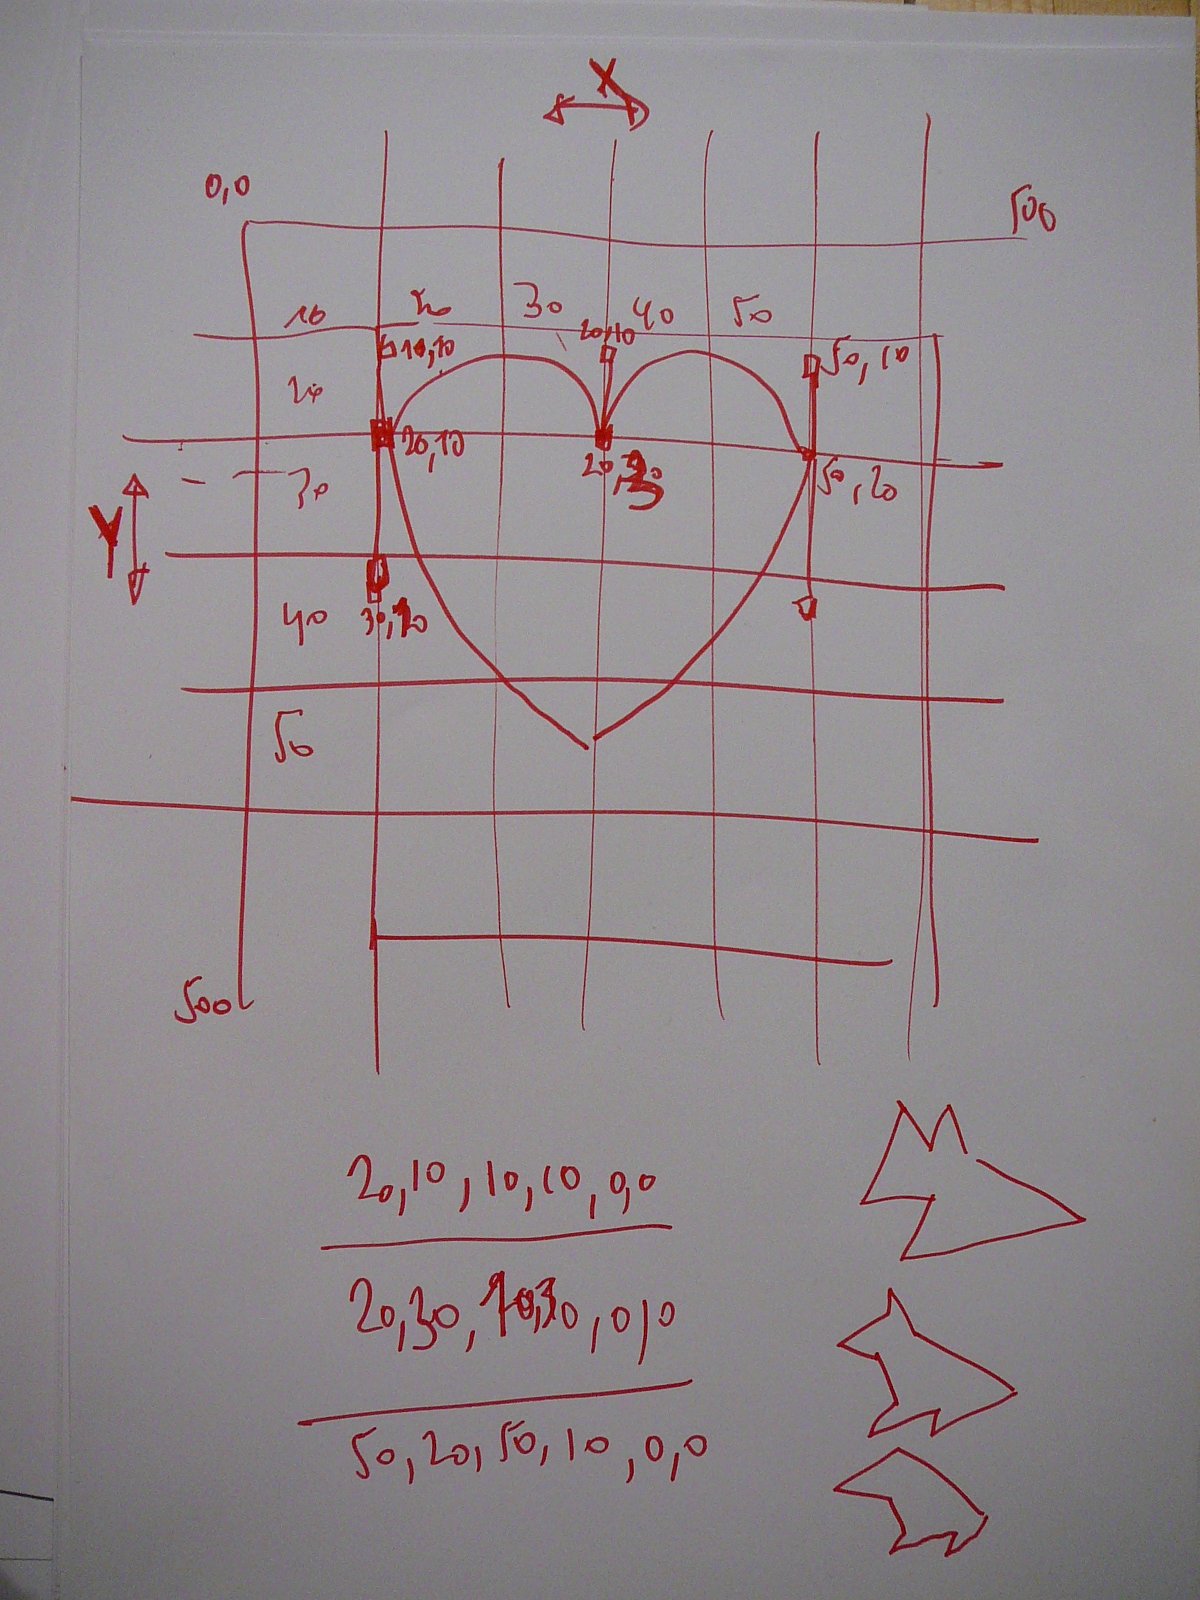 X
0,0
500
10 20 30 40 50
10,10
20,10
50,10
20
20,10
20,30
50,20
30
Y
40
50
500
20,10,10,10,0,0
20,30,10,30,0,0
50,20,50,10,0,0